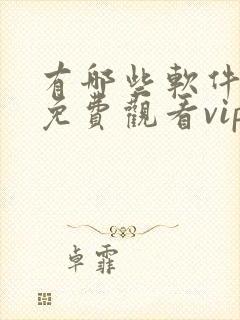 有哪些軟件
免費觀看vip
卓霏